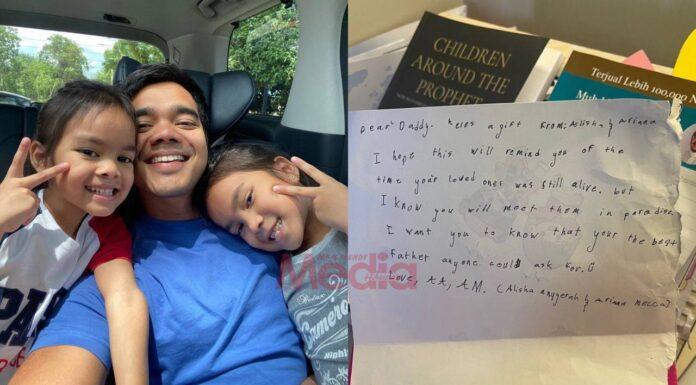 CHILDREN
AROUND THE
PROPHET
Terjual Lebih 100,000 N
Dear Daddy. heres a gift From: Alisha & Arianna
I hope this will remind you of the
time your loved ones was still alive, but
I know you will meet them in paradise
I want you to know that your the best
Father anyone could ask for.
Love, AA, AM. (Alisha anggerah & arianna mecca)
Media